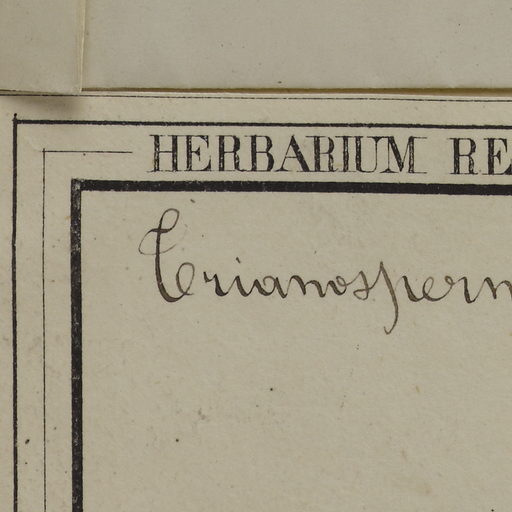 HERBARIUM RE
Trianosperm